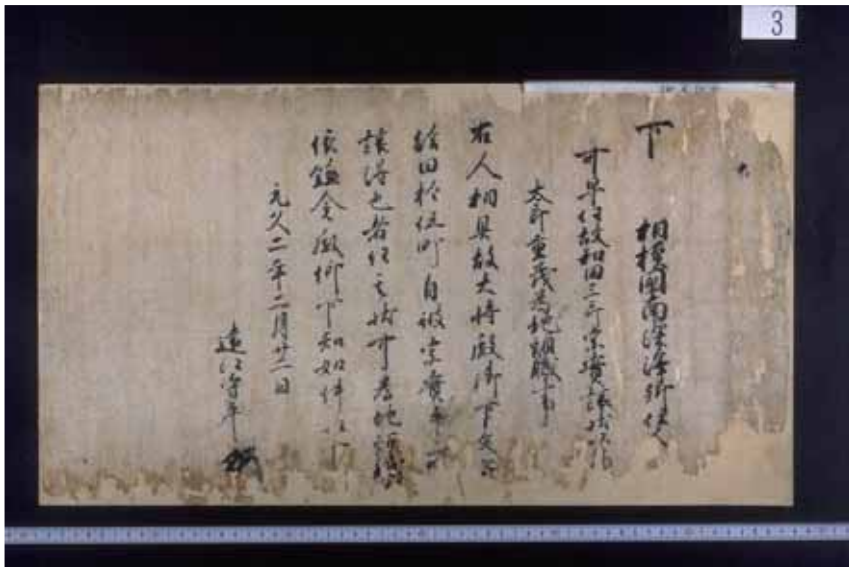 3
下　相模國南深澤郷住人
可早任故和田三郎宗實譲状以
太郎重茂為地頭職事
右人相具故大将殿御下文并
給田拾伍町自彼宗實手所
譲得也者任其状可為地頭職
依鎌倉殿仰下知如件以下
元久二年二月廿二日
遠江守平